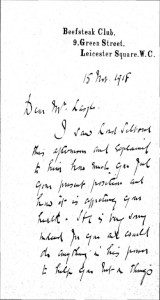 Beefsteak Club.
9, Green Street,
Leicester Square, W.C.
15 Nov. 1918
Dear Mr.
I saw Lord
this afternoon and explained
to him how much you feel
your present position and
how it is affecting your
health. He is very sorry
indeed for you and would
do anything in his power
to help you but as things